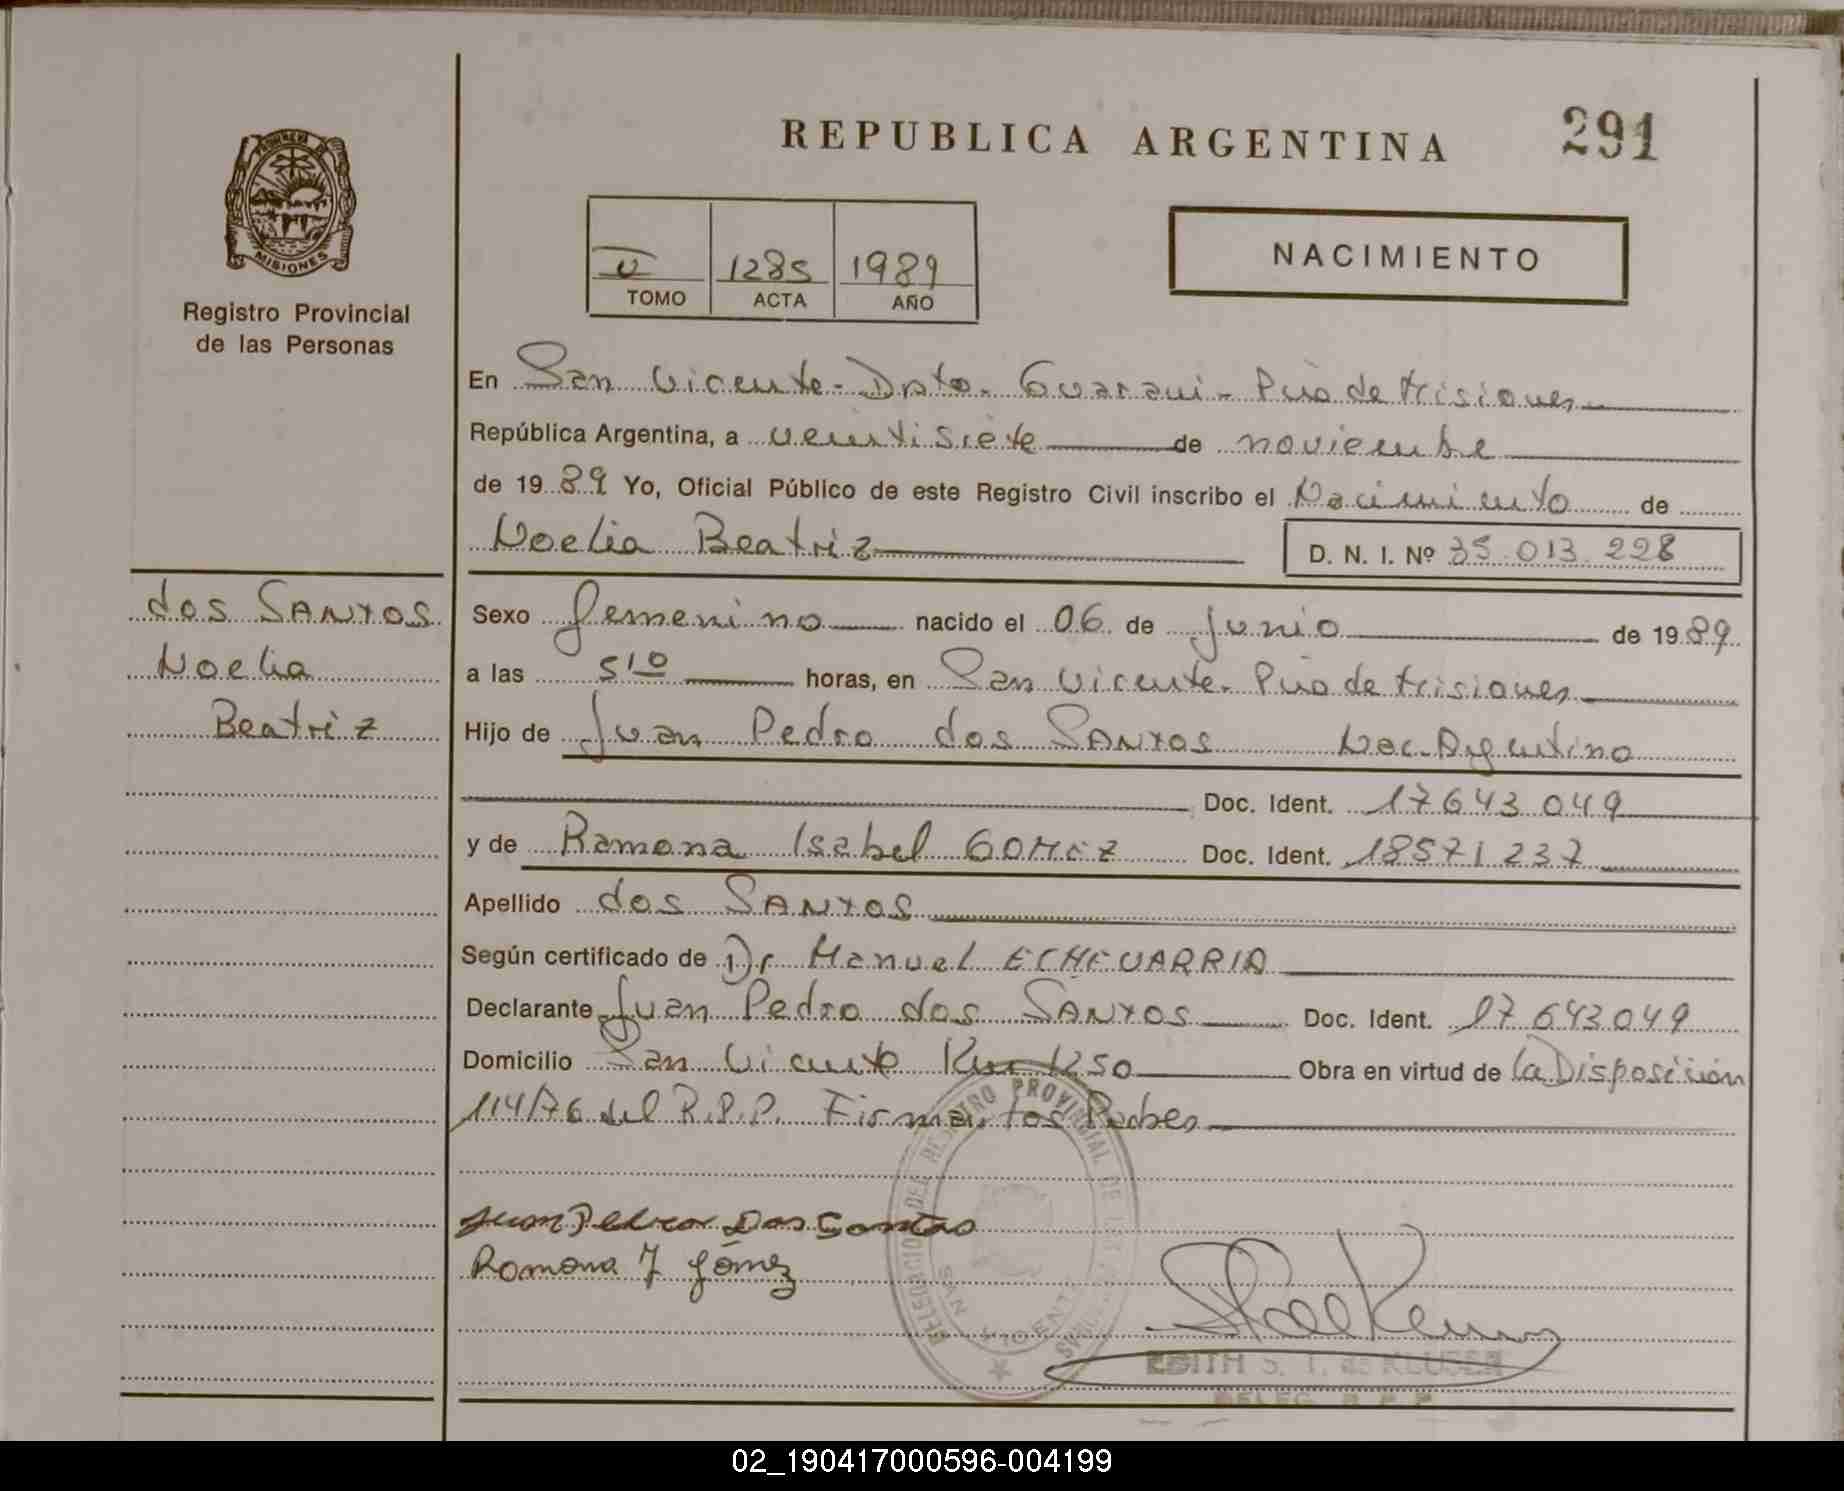 REPUBLICA ARGENTINA
291
PROVINCIA DE
MISIONES
Registro Provincial
de las Personas
V 1285 1989
TOMO ACTA AÑO
NACIMIENTO
En San Vicente - Dpto. Guarani - Pcia de Misiones
República Argentina, a veintisiete de noviembre
de 1989 Yo, Oficial Público de este Registro Civil inscribo el Nacimiento de
Noelia Beatriz
D. N. I. Nº 35.013.228
dos SANTOS
Noelia
Beatriz
Sexo femenino nacido el 06 de junio de 1989
a las 5'10 horas, en San Vicente. Pcia de Misiones
Hijo de Juan Pedro dos SANTOS Nac. Argentino
Doc. Ident. 17643049
y de Ramona Isabel GOMEZ Doc. Ident. 18571237
Apellido dos SANTOS
Según certificado de Dr Manuel ECHEVARRIA
Declarante Juan Pedro dos SANTOS Doc. Ident. 17643049
Domicilio San Vicente Km 1250 Obra en virtud de la Disposición
114/76 del R.P.P. Firman los Padres
Juan Pedro Dos Santos
Ramona I Gómez
DELEGACION DEL REGISTRO PROVINCIAL DE LAS PERSONAS
SAN VICENTE
EDITH S. T. de KLUSER
DELEG. R. P. P.
02_190417000596-004199